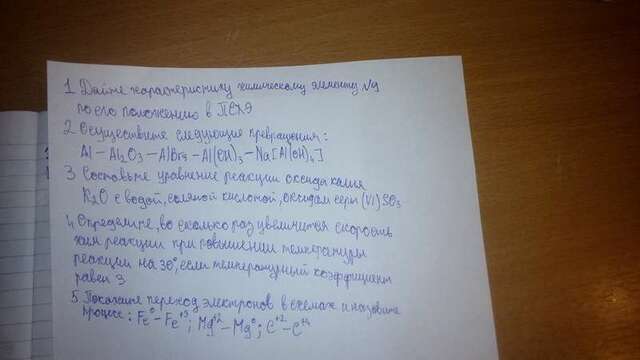 1 Дайте характеристику химическому элементу №9
по его положению в ПСХЭ
2 Осуществите следующие превращения:
Al – Al₂O₃ – AlBr₃ – Al(OH)₃ – Na[Al(OH)₄]
3 Составьте уравнение реакции оксида калия
K₂O с водой, соляной кислотой, оксидом серы (VI) SO₃
4 Определите, во сколько раз увеличится скорость
хим реакции при повышении температуры
реакции на 30°, если температурный коэффициент
равен 3
5 Покажите переход электронов в схемах и назовите
процессы: Fe⁰ – Fe⁺³; Mg⁺² – Mg⁰; C⁺² – C⁺⁴